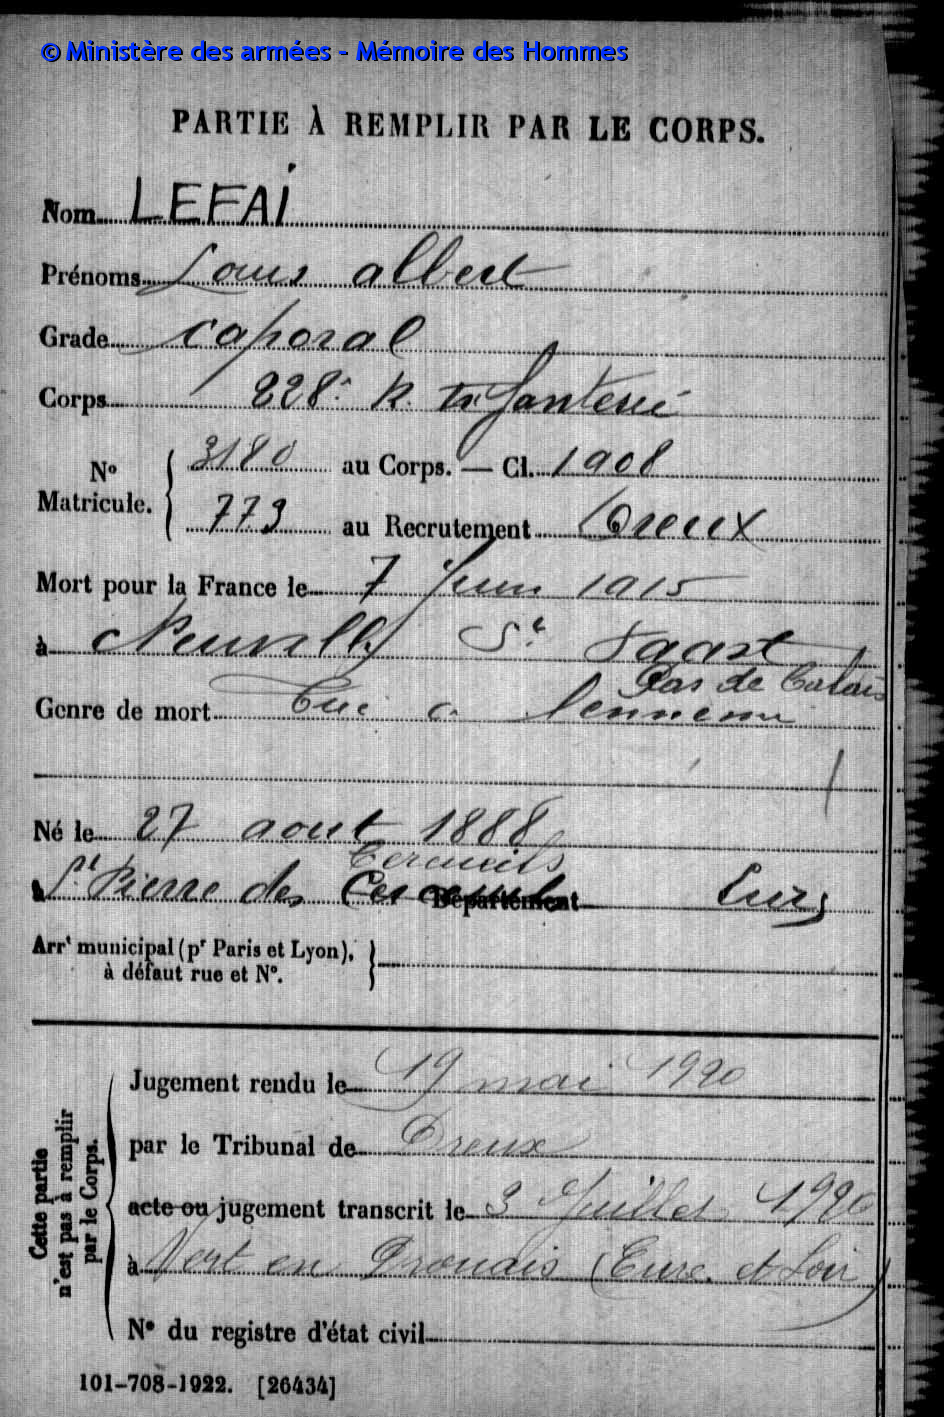 © Ministère des armées - Mémoire des Hommes
PARTIE À REMPLIR PAR LE CORPS.
Nom LEFAI
Prénoms Louis albert
Grade caporal
Corps 228e R. d'Infanterie
No Matricule. { 3180 au Corps. — Cl. 1908
773 au Recrutement Dreux
Mort pour la France le 7 Juin 1915
à Neuvilly St Vaast
Pas de Calais
Genre de mort Tué à l'ennemi
Né le 27 aout 1888
Cercueils
à St Pierre des Département Eure
Arrt municipal (pr Paris et Lyon), }
à défaut rue et No.
Cette partie n'est pas à remplir par le Corps.
Jugement rendu le 19 mai 1920
par le Tribunal de Dreux
acte ou jugement transcrit le 3 Juillet 1920
à Vert en Drouais (Eure et Loir)
No du registre d'état civil
101-708-1922. [26434]